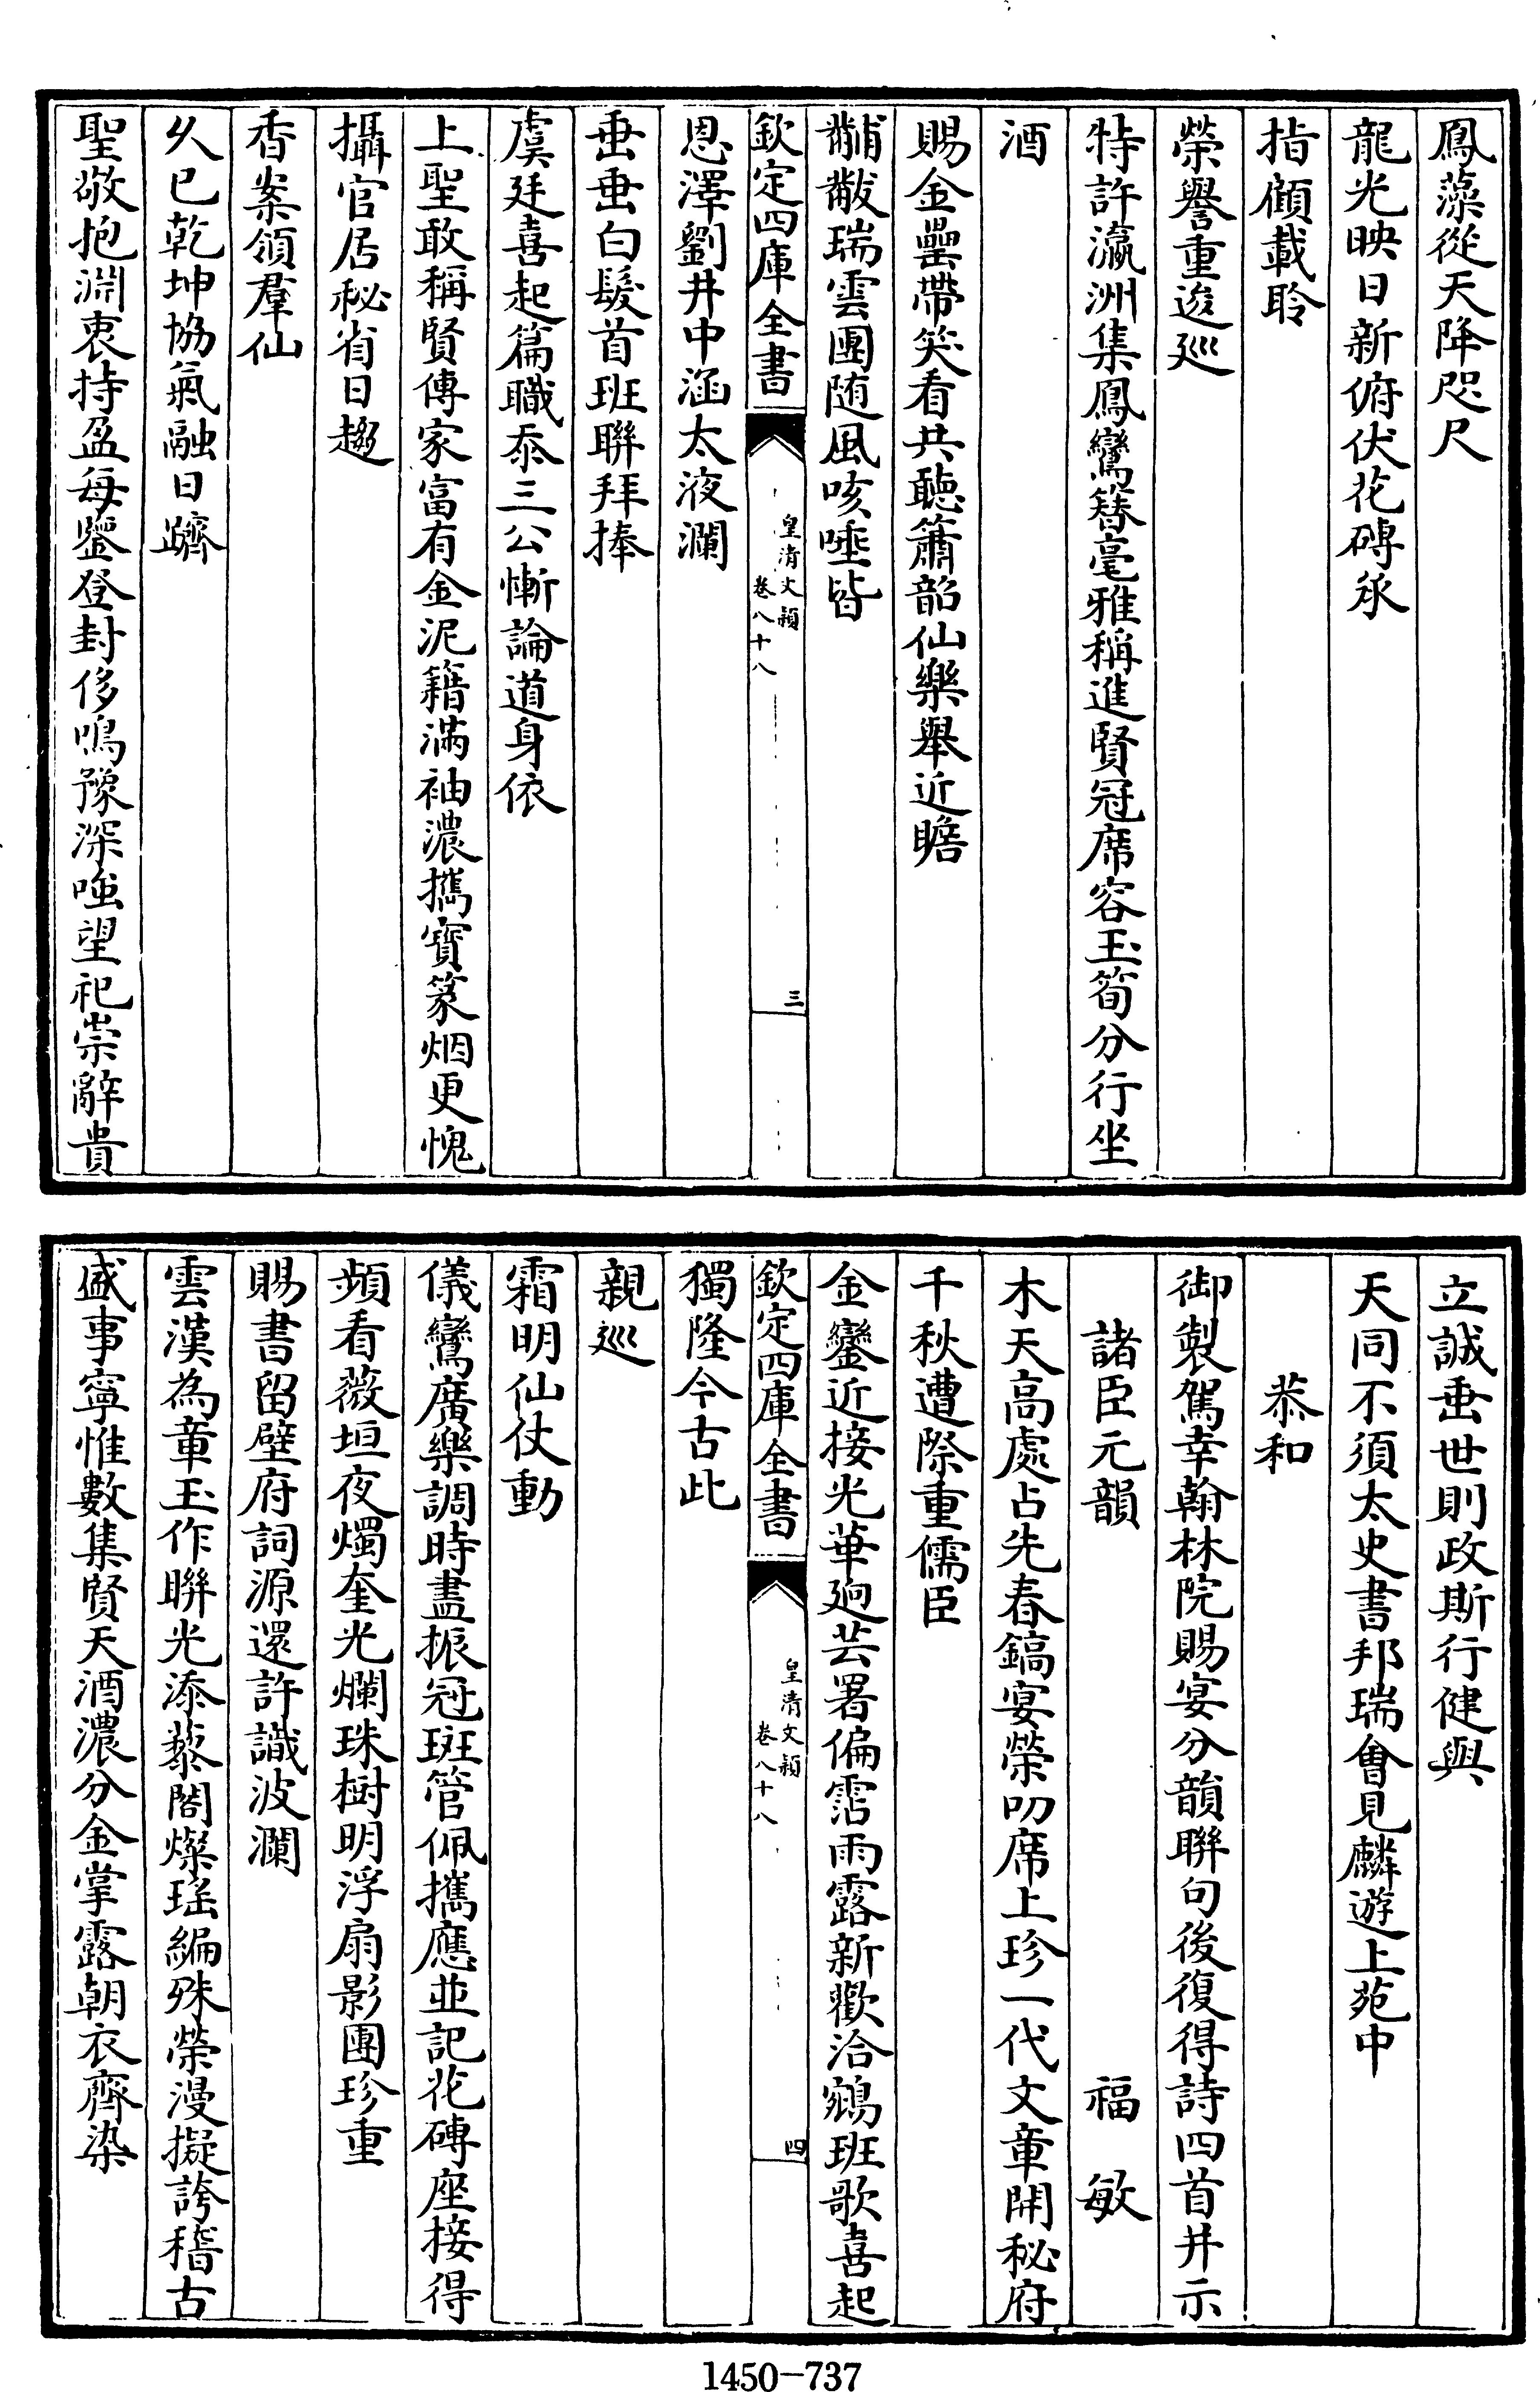 鳳藻從天降咫尺
龍光映日新俯伏花磚承
指顧載聆
榮譽重逡巡
特許瀛洲集鳳鸞簪毫雅稱進賢冠席容玉筍分行坐
酒
賜金罍帶笑看共聽簫韶仙樂舉近瞻
黼黻瑞雲團随風咳唾皆
欽定四庫全書
皇清文穎
卷八十八
三
恩澤劉井中涵太液瀾
垂垂白髮首班聯拜捧
虞廷喜起篇職忝三公慚論道身依
上聖敢稱賢傳家富有金泥籍滿袖濃攜寳篆烟更愧
攝官居秘省日趨
香案領羣仙
久已乾坤協氣融日躋
聖敬抱淵衷持盈每鑒登封侈鳴豫深嗤望祀崇辭貴
立誠垂世則政斯行健與
天同不須太史書邦瑞會見麟遊上苑中
恭和
御製駕幸翰林院賜宴分韻聯句後復得詩四首并示
諸臣元韻
福敏
木天高處占先春鎬宴榮叨席上珍一代文章開秘府
千秋遭際重儒臣
金鑾近接光華廻芸署偏霑雨露新歡洽鵷班歌喜起
欽定四庫全書
皇清文穎
卷八十八
四
獨隆今古此
親巡
霜明仙仗動
儀鸞廣樂調時盡振冠斑管佩攜應並記花磚座接得
頻看薇垣夜燭奎光爛珠樹明浮扇影團珍重
賜書留壁府詞源還許識波瀾
雲漢為章玉作聯光添藜閣燦瑤編殊榮漫擬誇稽古
盛事寧惟數集賢天酒濃分金掌露朝衣齊染
1450-737